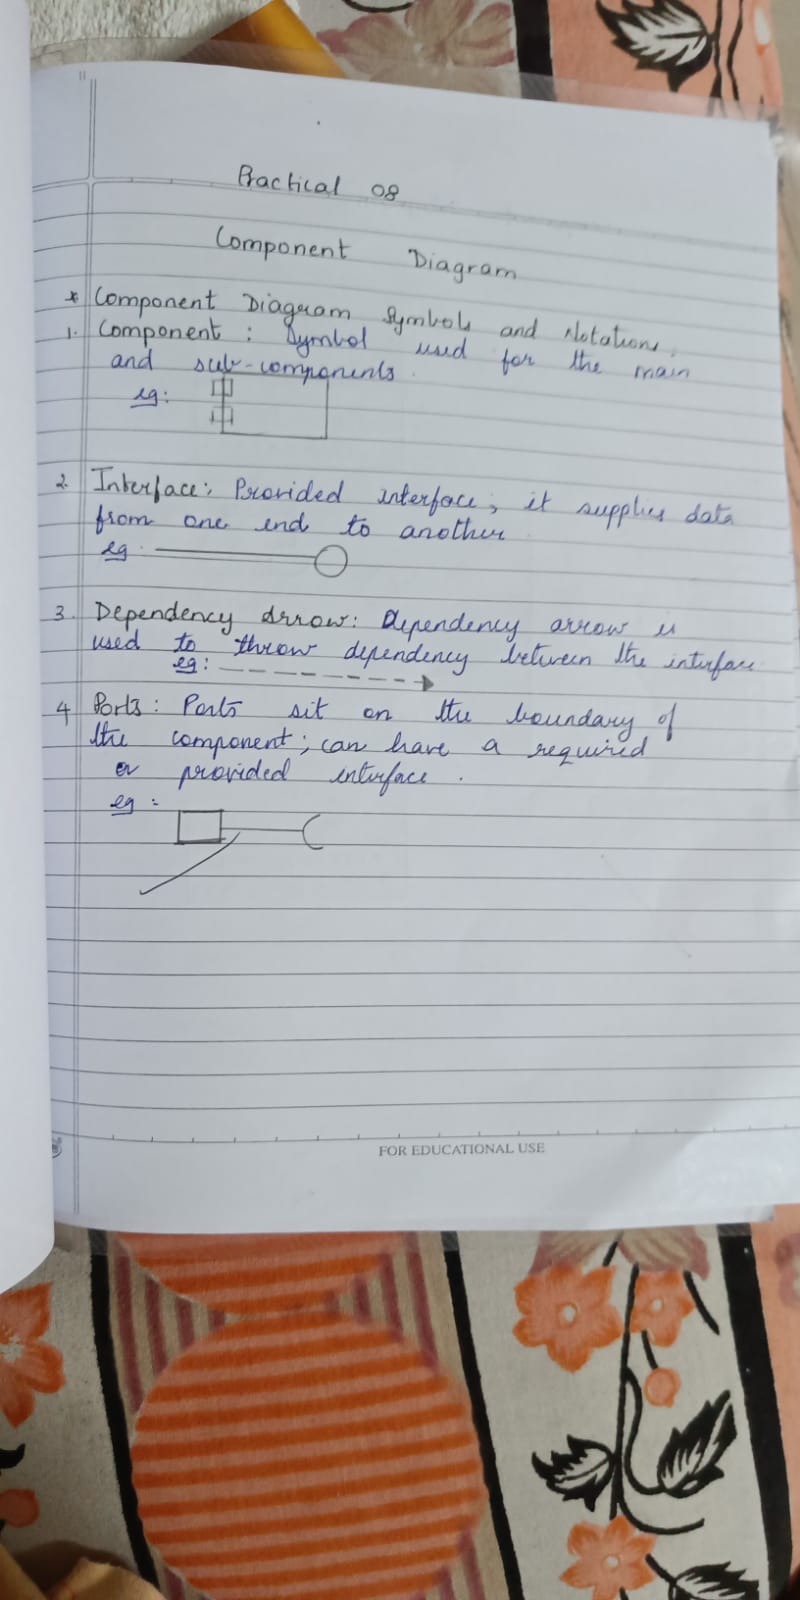 Practical 08
Component Diagram
* Component Diagram Symbols and Notations.
1. Component : Symbol used for the main
and sub-components.
eg:
2. Interface: Provided interface, it supplies data
from one end to another
eg.
3. Dependency Arrow: Dependency arrow is
used to throw dependency between the interface
eg:
4 Ports: Ports sit on the boundary of
the component; can have a required
or provided interface.
eg :
FOR EDUCATIONAL USE